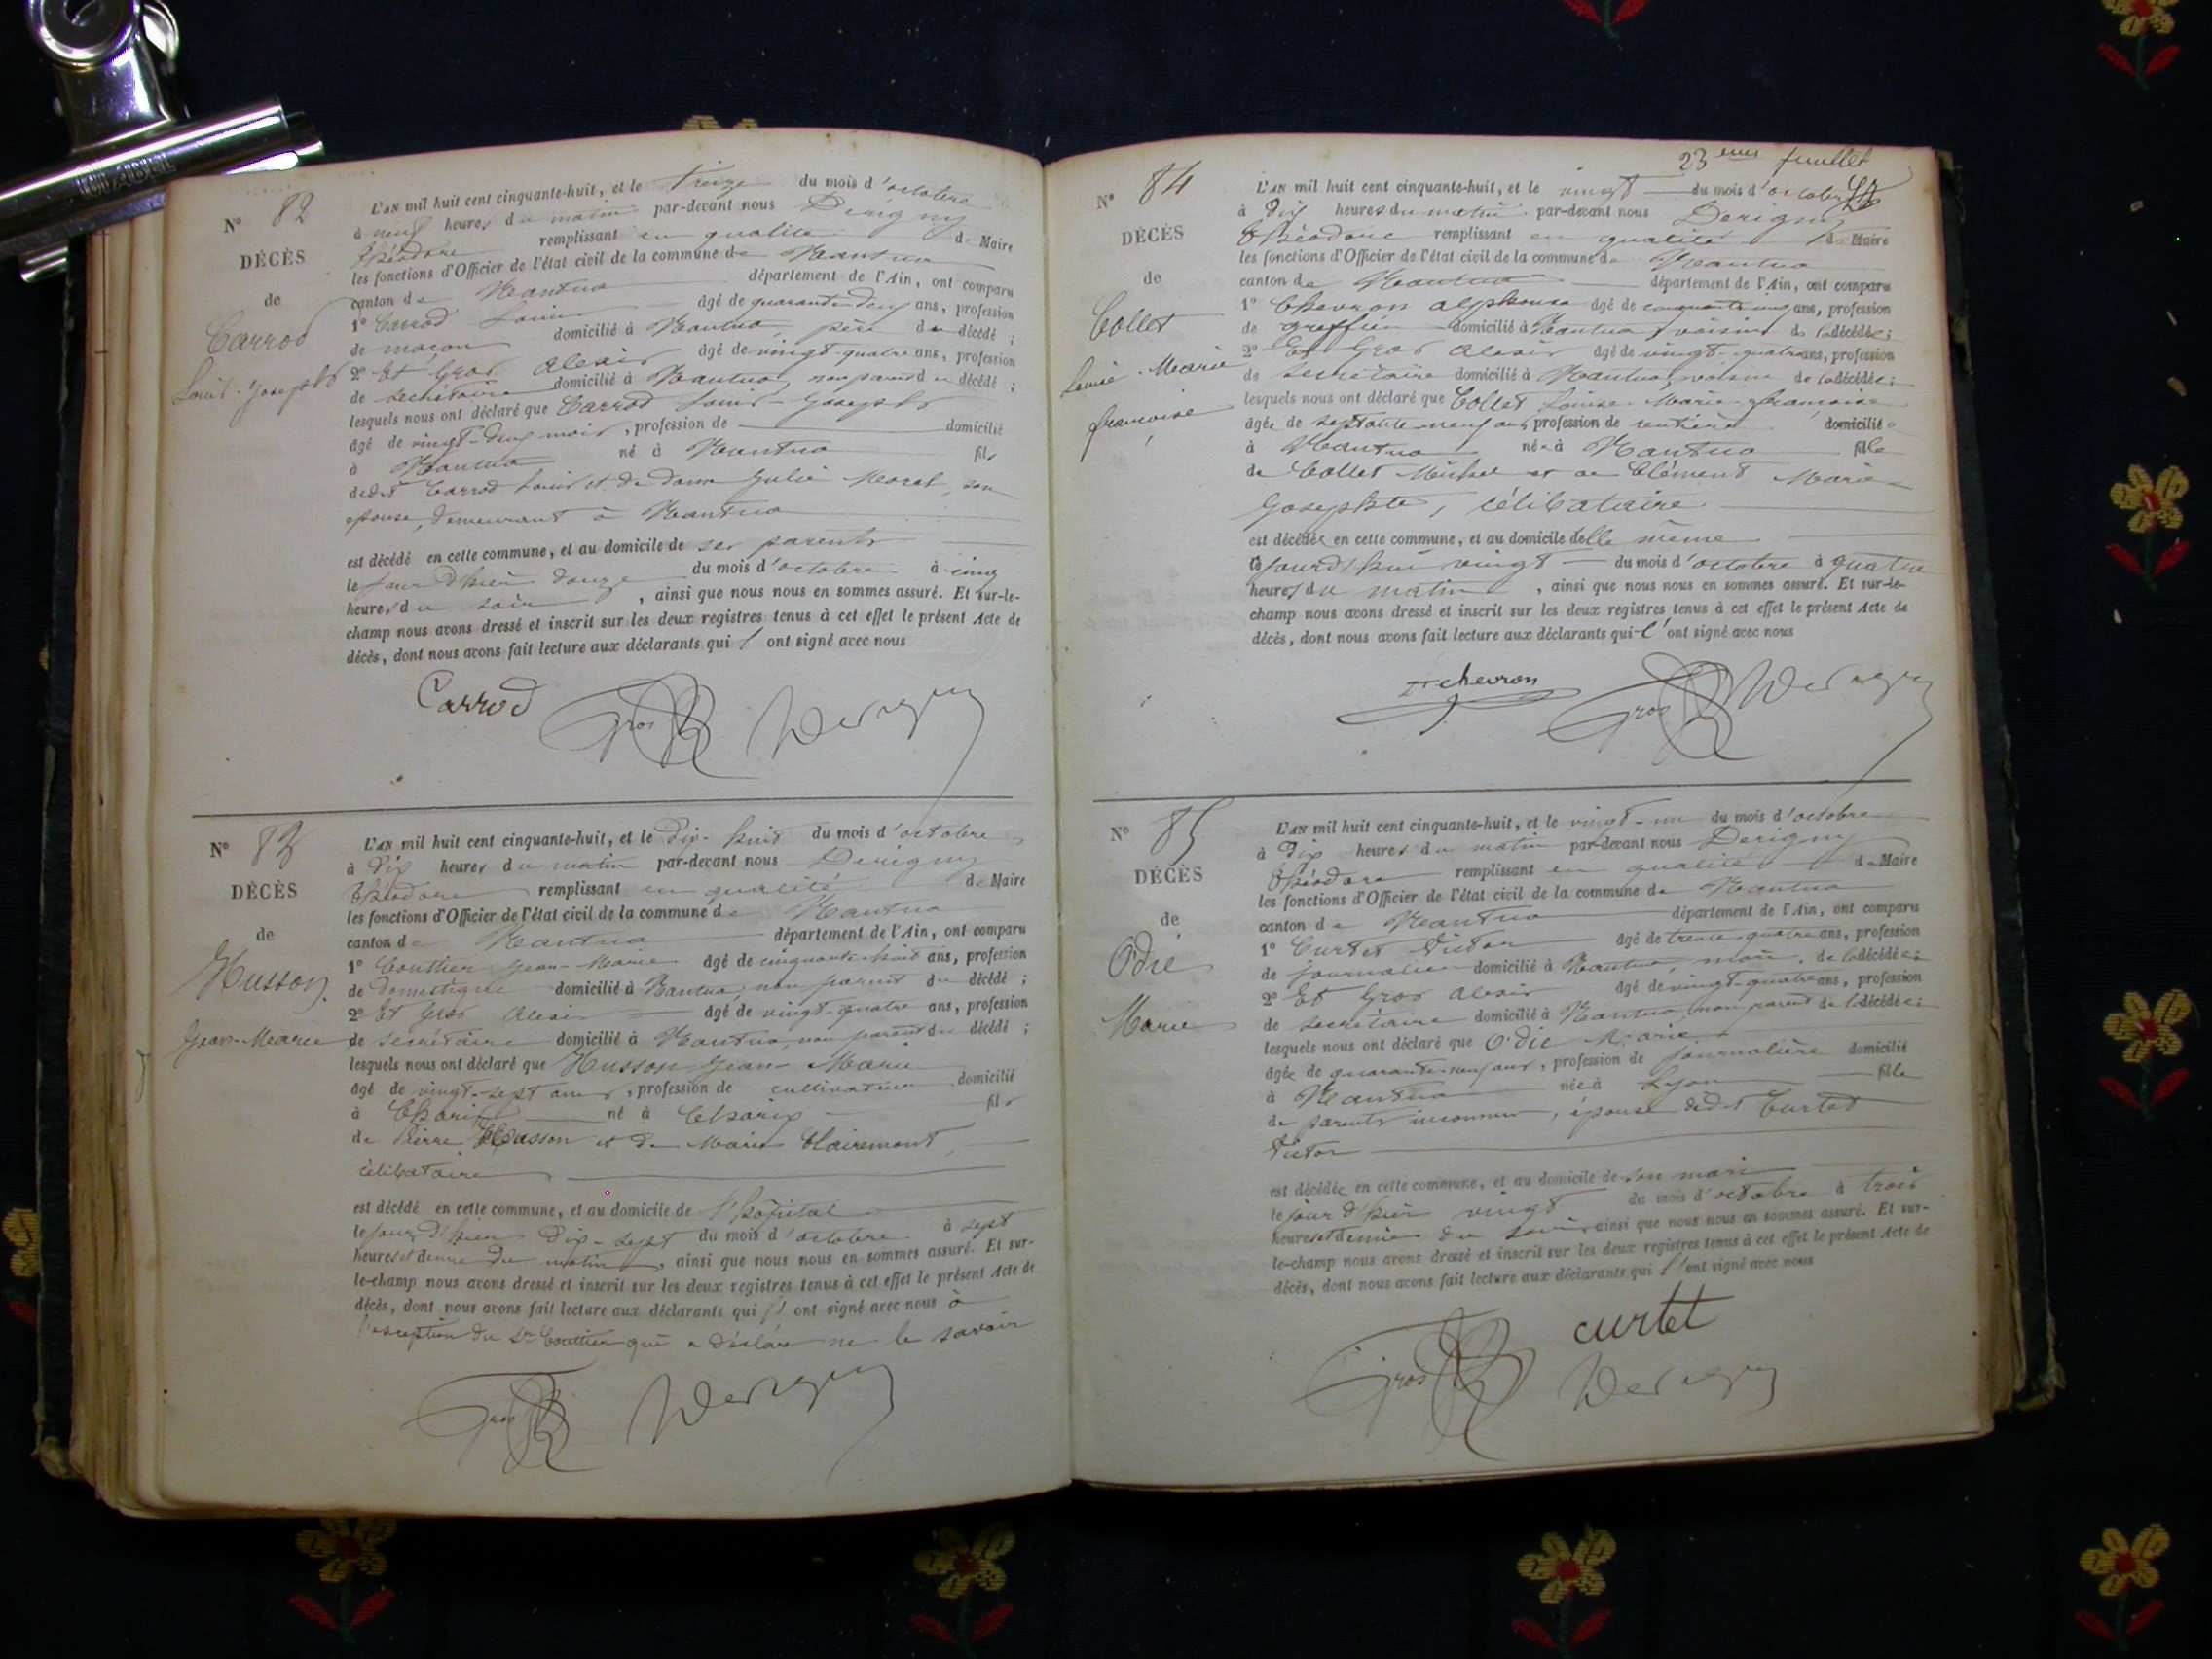 N° 82
DÉCÈS
de
Carrod
Louis-Joseph
L'AN mil huit cent cinquante-huit, et le treize du mois d'octobre
à neuf heures du matin par-devant nous Derigny
Théodore remplissant en qualité de Maire
les fonctions d'Officier de l'état civil de la commune de Nantua
canton de Nantua département de l'Ain, ont comparu
1° Carrod Louis âgé de quarante-deux ans, profession
de maçon domicilié à Nantua, père du décédé ;
2° Et Gros Alexis âgé de vingt-quatre ans, profession
de secrétaire domicilié à Nantua, non parent du décédé ;
lesquels nous ont déclaré que Carrod Louis-Joseph
âgé de vingt-deux mois, profession de domicilié
à Nantua né à Nantua fils
dudit Carrod Louis et de dame Julie Moret, son
épouse, demeurant à Nantua
est décédé en cette commune, et au domicile de ses parents
le jour d'hier douze du mois d'octobre à cinq
heures du soir, ainsi que nous nous en sommes assuré. Et sur-le-
champ nous avons dressé et inscrit sur les deux registres tenus à cet effet le présent Acte de
décès, dont nous avons fait lecture aux déclarants qui l'ont signé avec nous
Carrod Gros Derigny
N° 83
DÉCÈS
de
Husson
Jean-Marie
L'AN mil huit cent cinquante-huit, et le dix-huit du mois d'octobre
à dix heures du matin par-devant nous Derigny
Théodore remplissant en qualité de Maire
les fonctions d'Officier de l'état civil de la commune de Nantua
canton de Nantua département de l'Ain, ont comparu
1° Couttier Jean-Marie âgé de cinquante-huit ans, profession
de domestique domicilié à Nantua, non parent du décédé ;
2° Et Gros Alexis âgé de vingt-quatre ans, profession
de secrétaire domicilié à Nantua, non parent du décédé ;
lesquels nous ont déclaré que Husson Jean-Marie
âgé de vingt-sept ans, profession de cultivateur domicilié
à Charix né à Charix fils
de Pierre Husson et de Marie Clairemont,
célibataire
est décédé en cette commune, et au domicile de l'hôpital
le jour d'hier dix-sept du mois d'octobre à sept
heures et demie du matin, ainsi que nous nous en sommes assuré. Et sur-
le-champ nous avons dressé et inscrit sur les deux registres tenus à cet effet le présent Acte de
décès, dont nous avons fait lecture aux déclarants qui l'ont signé avec nous à
l'exception du Sr Couttier qui a déclaré ne le savoir
Gros Derigny
23eme feuillet
N° 84
DÉCÈS
de
Collet
Louise-Marie
françoise
L'AN mil huit cent cinquante-huit, et le vingt du mois d'octobre
à dix heures du matin par-devant nous Derigny
Théodore remplissant en qualité de Maire
les fonctions d'Officier de l'état civil de la commune de Nantua
canton de Nantua département de l'Ain, ont comparu
1° Chevron Alphonse âgé de cinquante cinq ans, profession
de greffier domicilié à Nantua, voisin de la décédée ;
2° Et Gros Alexis âgé de vingt-quatre ans, profession
de secrétaire domicilié à Nantua, voisin de la décédée ;
lesquels nous ont déclaré que Collet Louise-Marie-françoise
âgée de septante-neuf ans, profession de rentière domiciliée
à Nantua née à Nantua fille
de Collet Michel et de Clément Marie-
Josephte, célibataire
est décédée en cette commune, et au domicile d'elle même
le jourd'hui vingt du mois d'octobre à quatre
heures du matin, ainsi que nous nous en sommes assuré. Et sur-le-
champ nous avons dressé et inscrit sur les deux registres tenus à cet effet le présent Acte de
décès, dont nous avons fait lecture aux déclarants qui l'ont signé avec nous
chevron Gros Derigny
N° 85
DÉCÈS
de
Odie
Marie
L'AN mil huit cent cinquante-huit, et le vingt-un du mois d'octobre
à dix heures du matin par-devant nous Derigny
Théodore remplissant en qualité de Maire
les fonctions d'Officier de l'état civil de la commune de Nantua
canton de Nantua département de l'Ain, ont comparu
1° Curtet Victor âgé de trente-quatre ans, profession
de journalier domicilié à Nantua, mari de la décédée ;
2° Et Gros Alexis âgé de vingt-quatre ans, profession
de secrétaire domicilié à Nantua, non parent de la décédée ;
lesquels nous ont déclaré que Odie Marie
âgée de quarante-neuf ans, profession de journalière domicilié
à Nantua née à Lyon fille
de parents inconnus, épouse dudit Curtet
Victor
est décédée en cette commune, et au domicile de son mari
le jour d'hier vingt du mois d'octobre à trois
heures et demie du soir, ainsi que nous nous en sommes assuré. Et sur-
le-champ nous avons dressé et inscrit sur les deux registres tenus à cet effet le présent Acte de
décès, dont nous avons fait lecture aux déclarants qui l'ont signé avec nous
curtet
Gros Derigny